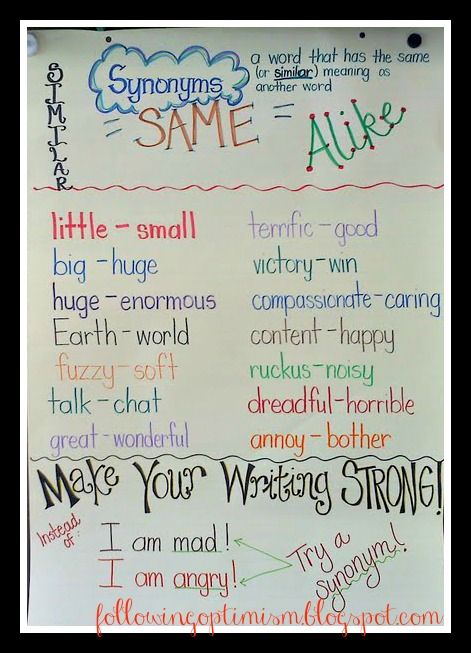 SIMILAR
Synonyms
a word that has the same
(or similar) meaning as
another word
= SAME = Alike
little - small
big - huge
huge - enormous
Earth - world
fuzzy - soft
talk - chat
great - wonderful
terrific - good
victory - win
compassionate - caring
content - happy
ruckus - noisy
dreadful - horrible
annoy - bother
Make Your Writing STRONG!
Instead of:
I am mad!
I am angry!
Try a
synonym!
followingoptimism.blogspot.com